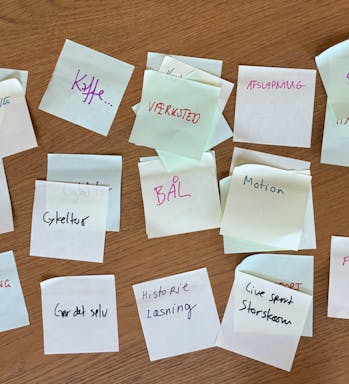 Kaffe...
VÆRKSTED
AFSLAPNING
BÅL
Motion
Cykeltur
Gør det selv
Historie
Læsning
Live sport
Storskærm